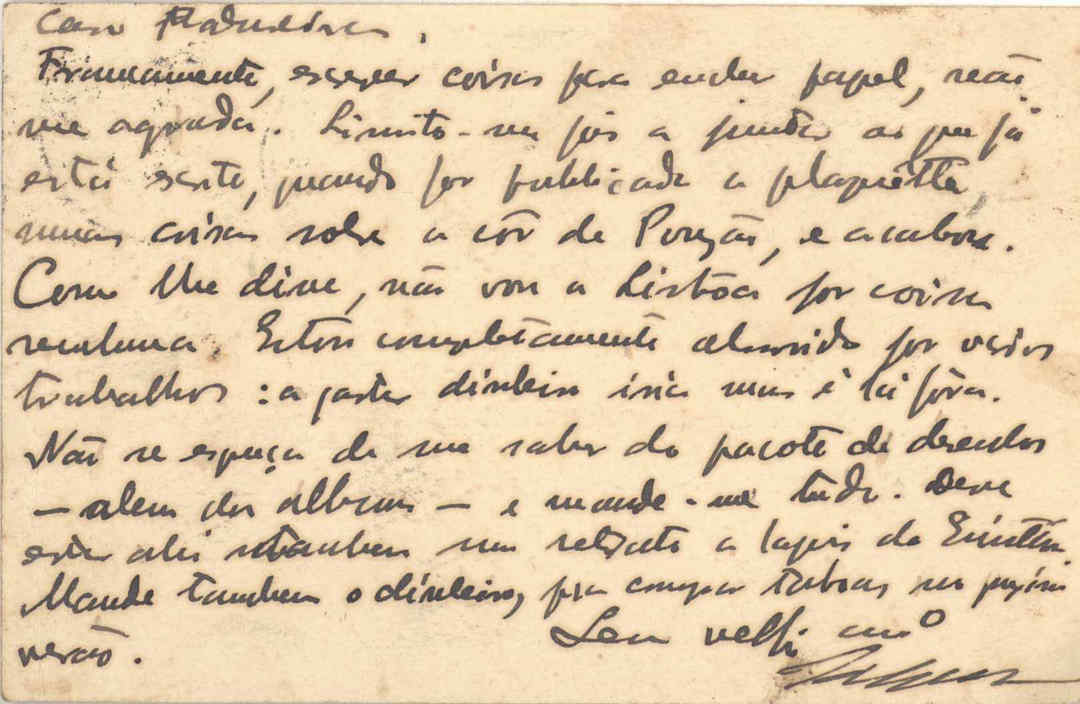 Caro Madureira.
Francamente, escrever coisas para encher papel, não
me agrada. Limito-me pois a juntar ao que já
está escrito, quando for publicada a plaquette,
umas coisas sobre a côr de Pousão, e acabou.
Como lhe disse, não vou a Lisbôa por coisa
nenhuma. Estou completamente absorvido por varios
trabalhos: a gastar dinheiro iria mas é lá fóra.
Não se esqueça de me saber do pacote de desenhos
— alem do album — e mande-me tudo. Deve
estar ali tambem um retrato a lapis do
Mande tambem o dinheiro, pra comprar taboas no proximo
verão.
Seu velho amº